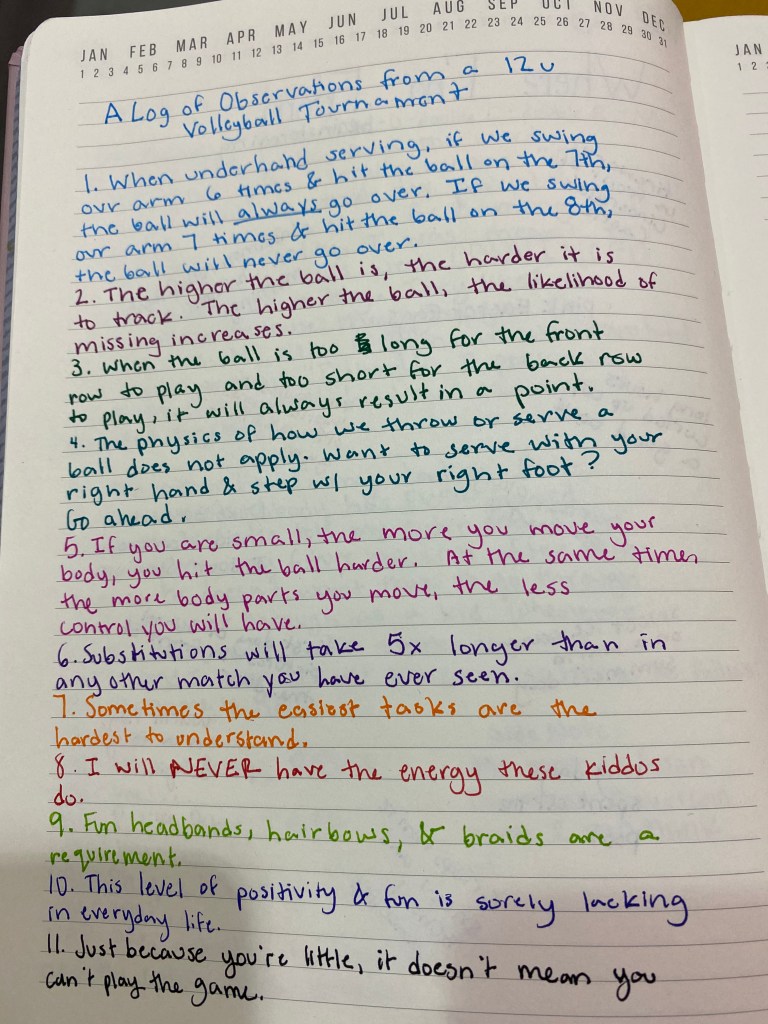 JAN FEB MAR APR MAY JUN JUL AUG SEP OCT NOV DEC
1 2 3 4 5 6 7 8 9 10 11 12 13 14 15 16 17 18 19 20 21 22 23 24 25 26 27 28 29 30 31
JAN
1 2
A Log of Observations from a 12u
Volleyball Tournament
1. When underhand serving, if we swing
our arm 6 times & hit the ball on the 7th,
the ball will always go over. If we swing
our arm 7 times & hit the ball on the 8th,
the ball will never go over.
2. The higher the ball is, the harder it is
to track. The higher the ball, the likelihood of
missing increases.
3. When the ball is too long for the front
row to play and too short for the back row
to play, it will always result in a point.
4. The physics of how we throw or serve a
ball does not apply. Want to serve with your
right hand & step w/ your right foot?
Go ahead.
5. If you are small, the more you move your
body, you hit the ball harder. At the same time,
the more body parts you move, the less
control you will have.
6. Substitutions will take 5x longer than in
any other match you have ever seen.
7. Sometimes the easiest tasks are the
hardest to understand.
8. I will NEVER have the energy these kiddos
do.
9. Fun headbands, hairbows, & braids are a
requirement.
10. This level of positivity & fun is sorely lacking
in everyday life.
11. Just because you're little, it doesn't mean you
can't play the game.